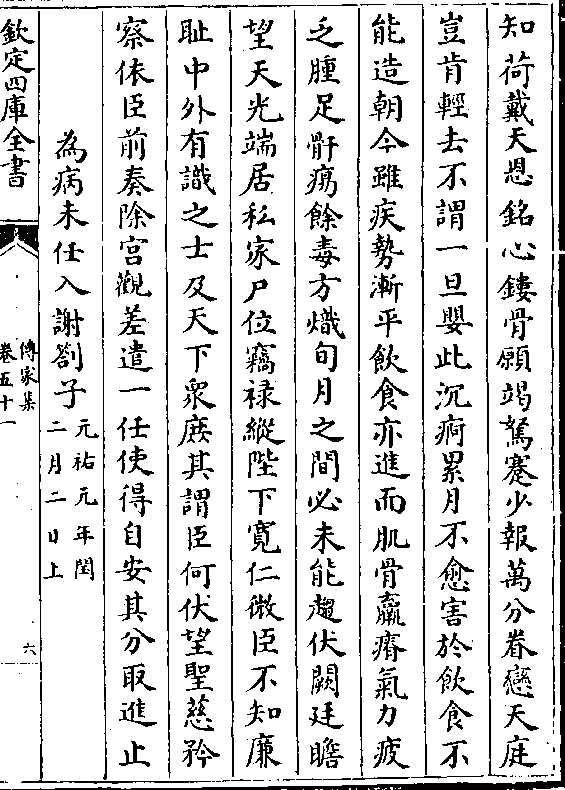 知荷戴天恩銘心鏤骨願竭駑蹇少報萬分眷戀天庭
豈肯輕去不謂一旦嬰此沉痾累月不愈害於飲食不
能造朝今雖疾勢漸平飲食亦進而肌骨羸瘠氣力疲
乏腫足骭瘍餘毒方熾旬月之間必未能趨伏闕廷瞻
望天光端居私家尸位竊祿縱陛下寛仁微臣不知廉
耻中外有識之士及天下衆庶其謂臣何伏望聖慈矜
察依臣前奏除宫觀差遣一任使得自安其分取進止
為病未任入謝劄子元祐元年閏二月二日上
欽定四庫全書
傳家集
卷五十一
六